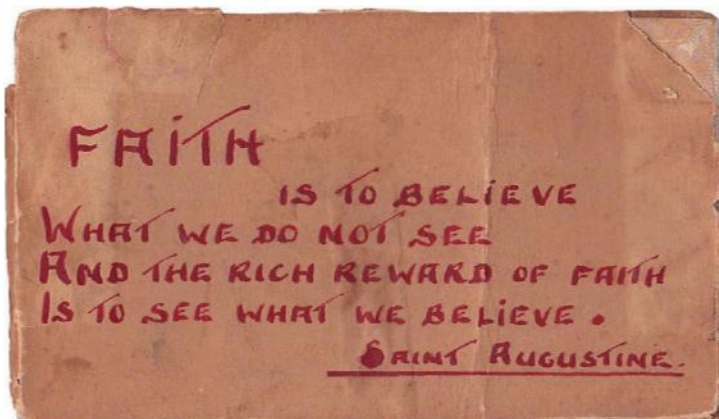 FAiTH
IS TO BELiEVE
WHAT WE DO NOT SEE
AND THE RICH REWARD OF FAITH
IS TO SEE WHAT WE BELiEVE.
SAINT AUGUSTINE.